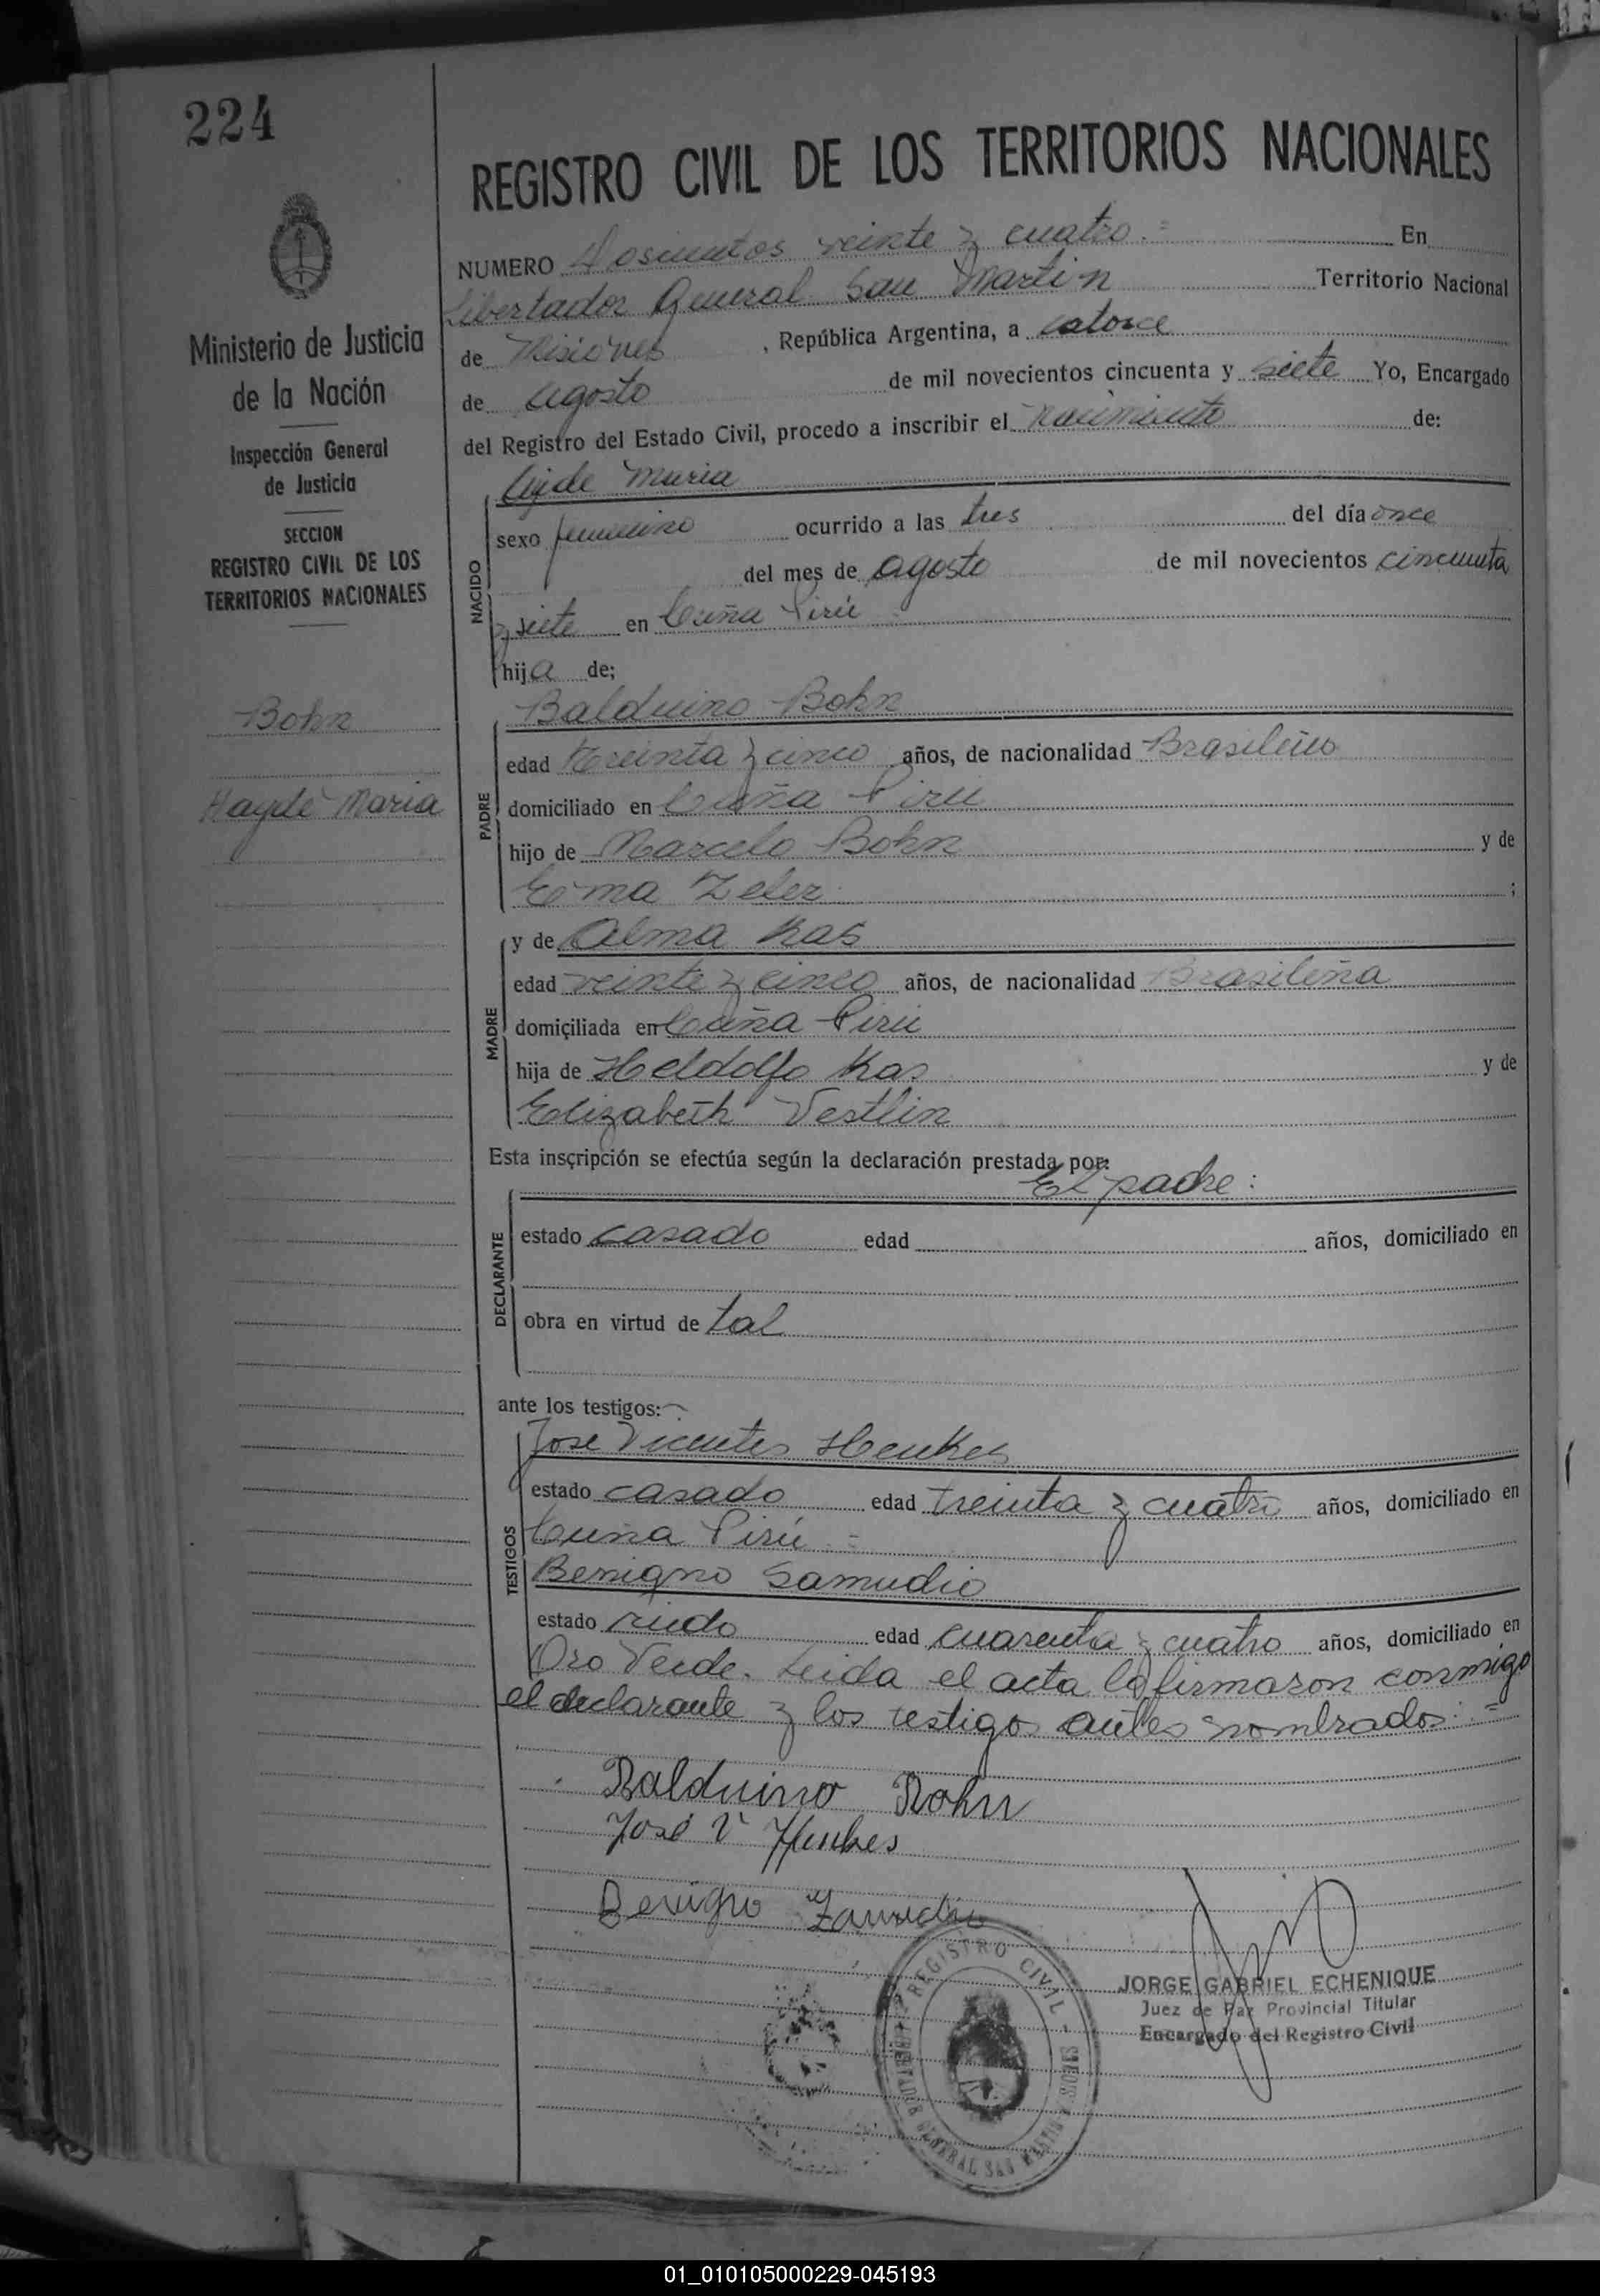 224
REGISTRO CIVIL DE LOS TERRITORIOS NACIONALES
Ministerio de Justicia
de la Nación
Inspección General
de Justicia
SECCION
REGISTRO CIVIL DE LOS
TERRITORIOS NACIONALES
Bohn
Haydé Maria
NUMERO Dosientos veinte y cuatro.= En
Libertador General San Martin Territorio Nacional
de Misiones, República Argentina, a catorce
de Agosto de mil novecientos cincuenta y siete Yo, Encargado
del Registro del Estado Civil, procedo a inscribir el nacimiento de:
NACIDO
Maria
sexo femenino ocurrido a las tres del día once
del mes de agosto de mil novecientos cincuenta
y siete en Cuña Pirú
hija de;
PADRE
Balduino Bohn
edad treinta y cinco años, de nacionalidad Brasileño
domiciliado en Cuña Pirú
hijo de Marcelo Bohn y de
Erma Zeler ;
MADRE
y de Alma Kas
edad veinte y cinco años, de nacionalidad Brasileña
domiciliada en Cuña Pirú
hija de Heldolfo Kas y de
Elizabeth Vestlin
Esta inscripción se efectúa según la declaración prestada por:
El padre:
DECLARANTE
estado casado edad años, domiciliado en
obra en virtud de tal
ante los testigos:
TESTIGOS
Jose Vicentes Henkes
estado casado edad treinta y cuatro años, domiciliado en
Cuña Pirú =
Benigno Samudio
estado viudo edad cuarenta y cuatro años, domiciliado en
Oro Verde. Leida el acta la firmaron conmigo
el declarante y los testigos antes nombrados.=
Balduino Bohn
José V Henkes
Benigno Zamudio
REGISTRO CIVIL - MISIONES
LIBERTADOR GENERAL SAN MARTIN
JORGE GABRIEL ECHENIQUE
Juez de Paz Provincial Titular
Encargado del Registro Civil
01_010105000229-045193